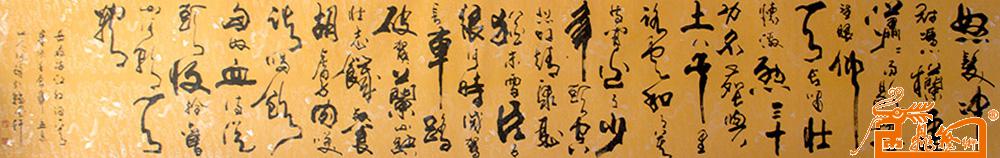 怒髮冲
冠憑欄處
瀟瀟雨歇
望眼仰
天長嘯壯
懷激烈三十
功名塵與
土八千里
路雲和月莫
等閒白了少
年頭空
悲切靖康恥
猶未雪臣
恨何時滅駕
長車踏
破賀蘭山缺
壯志饑餐
胡虜肉笑
談渴飲
匈奴血待從
頭收拾舊
山河朝天
闕
岳飛滿江紅